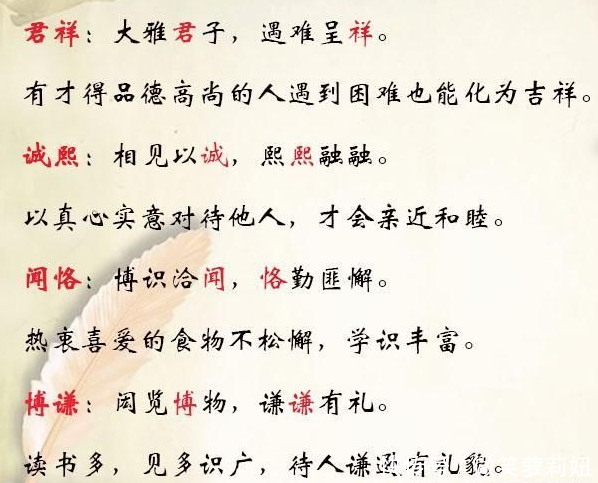 君祥：大雅君子，遇难呈祥。
有才得品德高尚的人遇到困难也能化为吉祥。
诚熙：相见以诚，熙熙融融。
以真心实意对待他人，才会亲近和睦。
闻恪：博识洽闻，恪勤匪懈。
热衷喜爱的食物不松懈，学识丰富。
博谦：闳览博物，谦谦有礼。
读书多，见多识广，待人谦逊有礼貌。
微笑萝莉妞